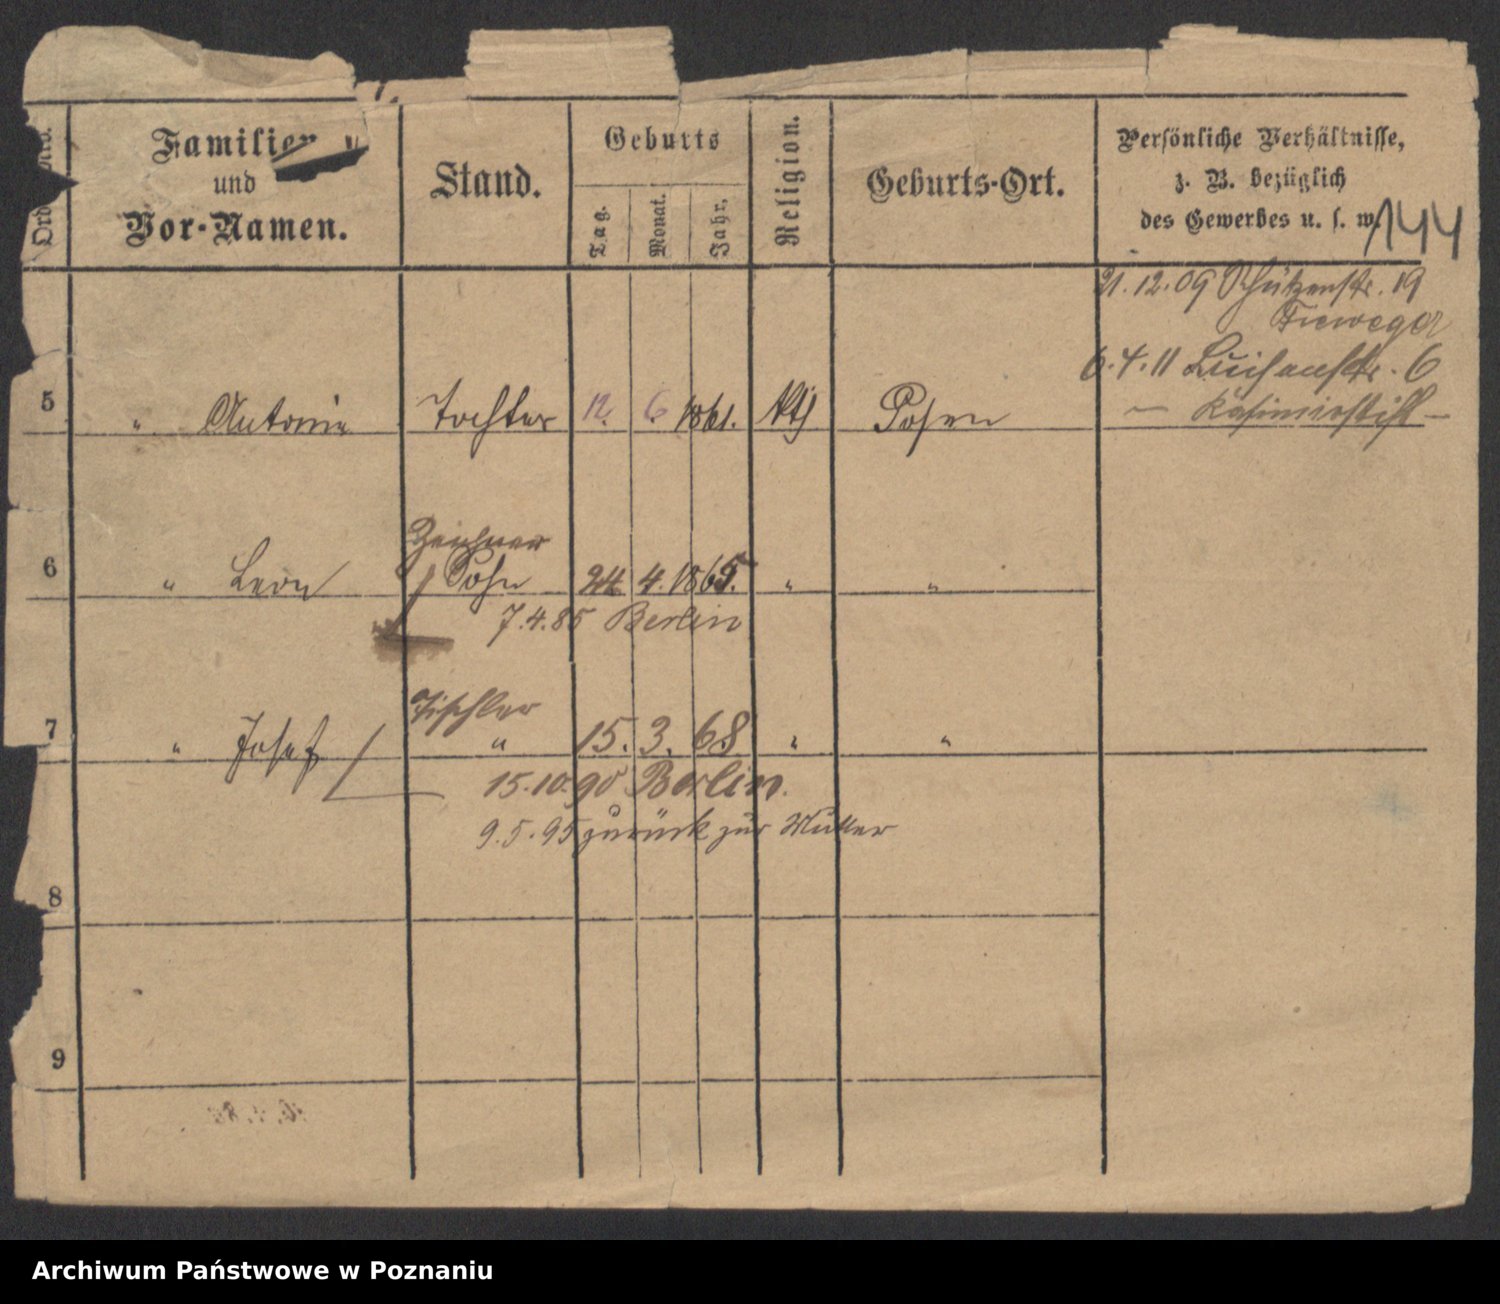 Familien
und
Vor-Namen.
Stand.
Geburts
Tag.
Monat.
Jahr.
Religion.
Geburts-Ort.
Persönliche Verhältnisse,
z. B. bezüglich
des Gewerbes u. s. w.
144
21.12.09 Schützenstr. 19
6.4.11 Luisenstr. 6
— Kasimirstift —
5 " Antonie Tochter 12. 6 1861. kth Posen
Zeichner
6 " Leon Sohn 24 4. 1865. " "
7.4.85 Berlin
Tischler
7 " Josef " 15. 3. 68 " "
15.10.90 Berlin.
9.5.95 zurück zur Mutter
8
9
Archiwum Państwowe w Poznaniu